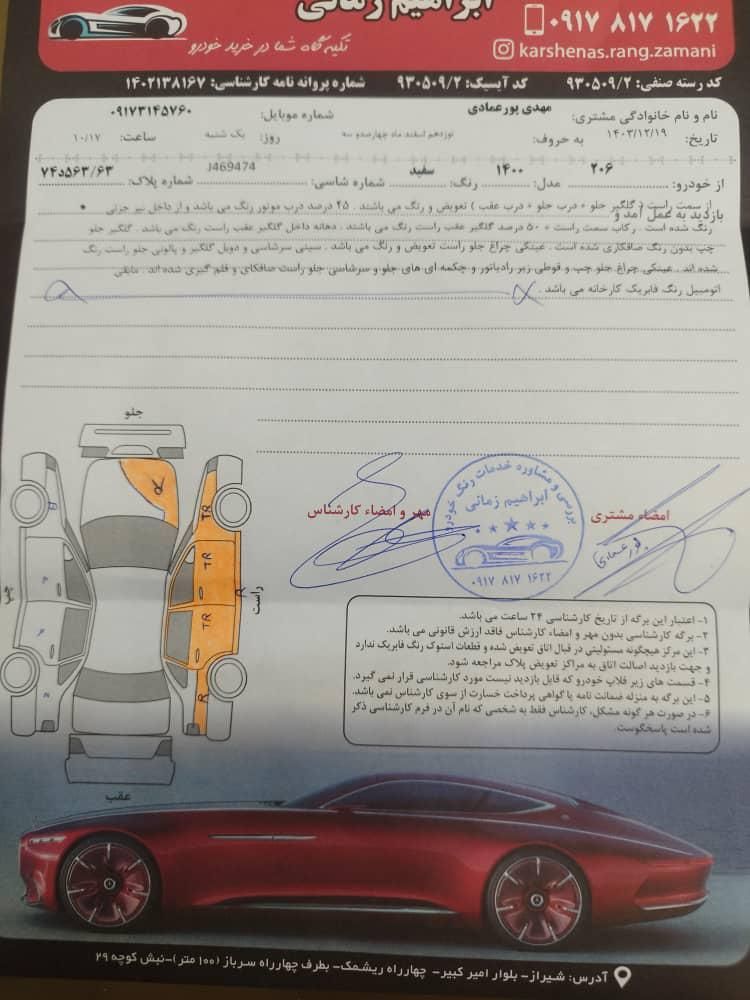 ابراهیم زمانی
۰۹۱۷ ۸۱۷ ۱۶۲۲
تکیه گاه شما در خرید خودرو
karshenas.rang.zamani
کد رسته صنفی: ۹۳۰۵۰۹/۲ کد آیسیک: ۹۳۰۵۰۹/۲ شماره پروانه نامه کارشناسی: ۱۴۰۲۱۳۸۱۶۷
نام و نام خانوادگی مشتری: مهدی پورعمادی شماره موبایل: ۰۹۱۷۳۱۴۵۷۶۰
تاریخ: ۱۴۰۳/۱۲/۱۹ به حروف: نوزدهم اسفند ماه چهارصدو سه روز: یک شنبه ساعت: ۱۰/۱۷
از خودرو: ۲۰۶ مدل: ۱۴۰۰ رنگ: سفید شماره شاسی: J469474 شماره پلاک: ۷۴د۵۶۳/۶۳
بازدید به عمل آمد و
از سمت راست ( گلگیر جلو + درب جلو + درب عقب ) تعویض و رنگ می باشند . ۴۵ درصد درب موتور رنگ می باشد و از داخل نیز جزئی
رنگ شده است . رکاب سمت راست + ۵۰ درصد گلگیر عقب راست رنگ می باشند . دهانه داخل گلگیر عقب راست رنگ می باشد . گلگیر جلو
چپ بدون رنگ صافکاری شده است . عینکی چراغ جلو راست تعویض و رنگ می باشد . سینی سرشاسی و دوبل گلگیر و پالونی جلو راست رنگ
شده اند . عینکی چراغ جلو چپ و قوطی زیر رادیاتور و چکمه ای های جلو و سرشاسی جلو راست صافکای و قلم گیری شده اند . مابقی
اتومبیل رنگ فابریک کارخانه می باشد .
جلو
R
TR
TR
TR
R
R
راست
چپ
عقب
مهر و امضاء کارشناس
بررسی و مشاوره خدمات رنگ خودرو
ابراهیم زمانی
۰۹۱۷ ۸۱۷ ۱۶۲۲
امضاء مشتری
پورعمادی
۱- اعتبار این برگه از تاریخ کارشناسی ۲۴ ساعت می باشد.
۲- برگه کارشناسی بدون مهر و امضاء کارشناس فاقد ارزش قانونی می باشد.
۳- این مرکز هیچگونه مسئولیتی در قبال اتاق تعویض شده و قطعات استوک رنگ فابریک ندارد
و جهت بازدید اصالت اتاق به مراکز تعویض پلاک مراجعه شود.
۴- قسمت های زیر فلاپ خودرو که قابل بازدید نیست مورد کارشناسی قرار نمی گیرد.
۵- این برگه به منزله ضمانت نامه یا گواهی پرداخت خسارت از سوی کارشناس نمی باشد.
۶- در صورت هر گونه مشکل، کارشناس فقط به شخصی که نام آن در فرم کارشناسی ذکر
شده است پاسخگوست.
آدرس: شیراز- بلوار امیر کبیر- چهارراه ریشمک- بطرف چهارراه سرباز (۱۰۰ متر)-نبش کوچه ۲۹